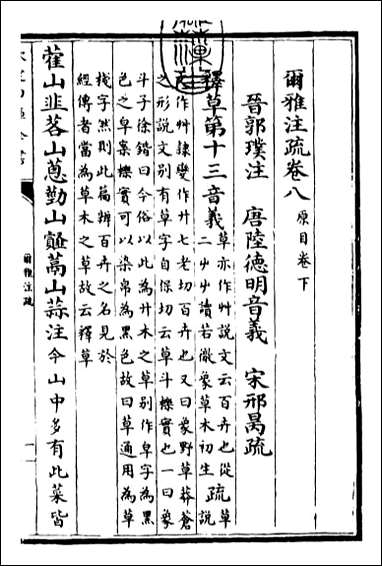 爾雅注疏卷八 原目卷下
晉郭璞注 唐陸德明音義 宋邢昺疏
釋草第十三音義 草亦作艸説文云百卉也從
二屮屮讀若徹象草木初生 疏 草説
作艸隸變作廾七老切百卉也又曰象野草莽蒼
之形説文别有草字自保切云草斗櫟實也一曰象
斗子徐鍇曰今俗以此為廾木之草别作皁字為黑
色之皁案櫟實可以染帛為黑色故曰草通用為草
棧字然則此篇辨百卉之名見於
經傳者當為草木之草故云釋草
藿山韭茖山蔥勤山䪥蒚山蒜注今山中多有此菜皆
爾雅注疏